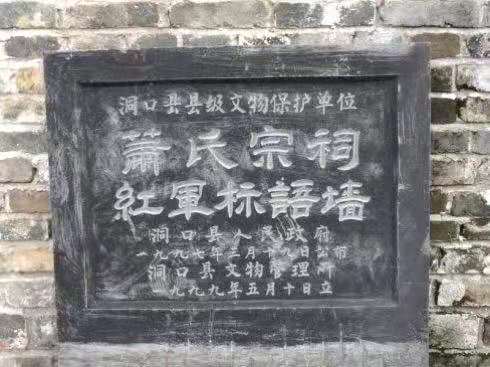 洞口县县级文物保护单位
蕭氏宗祠
紅軍标語墙
洞口县人民政府
一九九七年三月十九日公布
洞口县文物管理所
一九九九年五月十日立